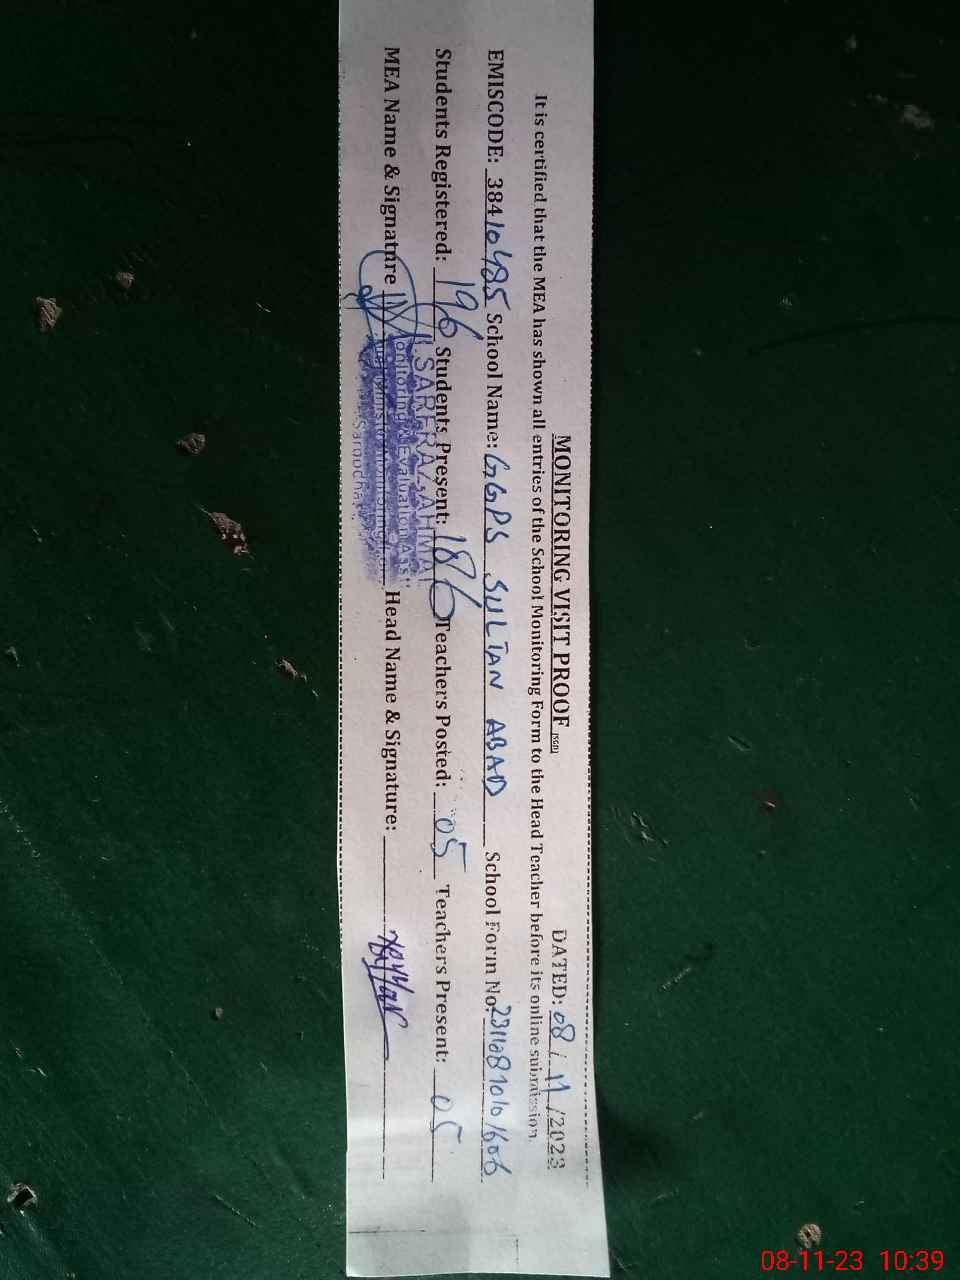 MONITORING VISIT PROOF (SGD) DATED: 08 / 11 /2023
It is certified that the MEA has shown all entries of the School Monitoring Form to the Head Teacher before its online submission.
EMISCODE: 38410485 School Name: GGPS SULTAN ABAD School Form No: 23110810101606
Students Registered: 196 Students Present: 186 Teachers Posted: 05 Teachers Present: 05
MEA Name & Signature Head Name & Signature:
SARFRAZ AHMAD
Monitoring & Evaluation Asstt:
Sargodha
08-11-23 10:39